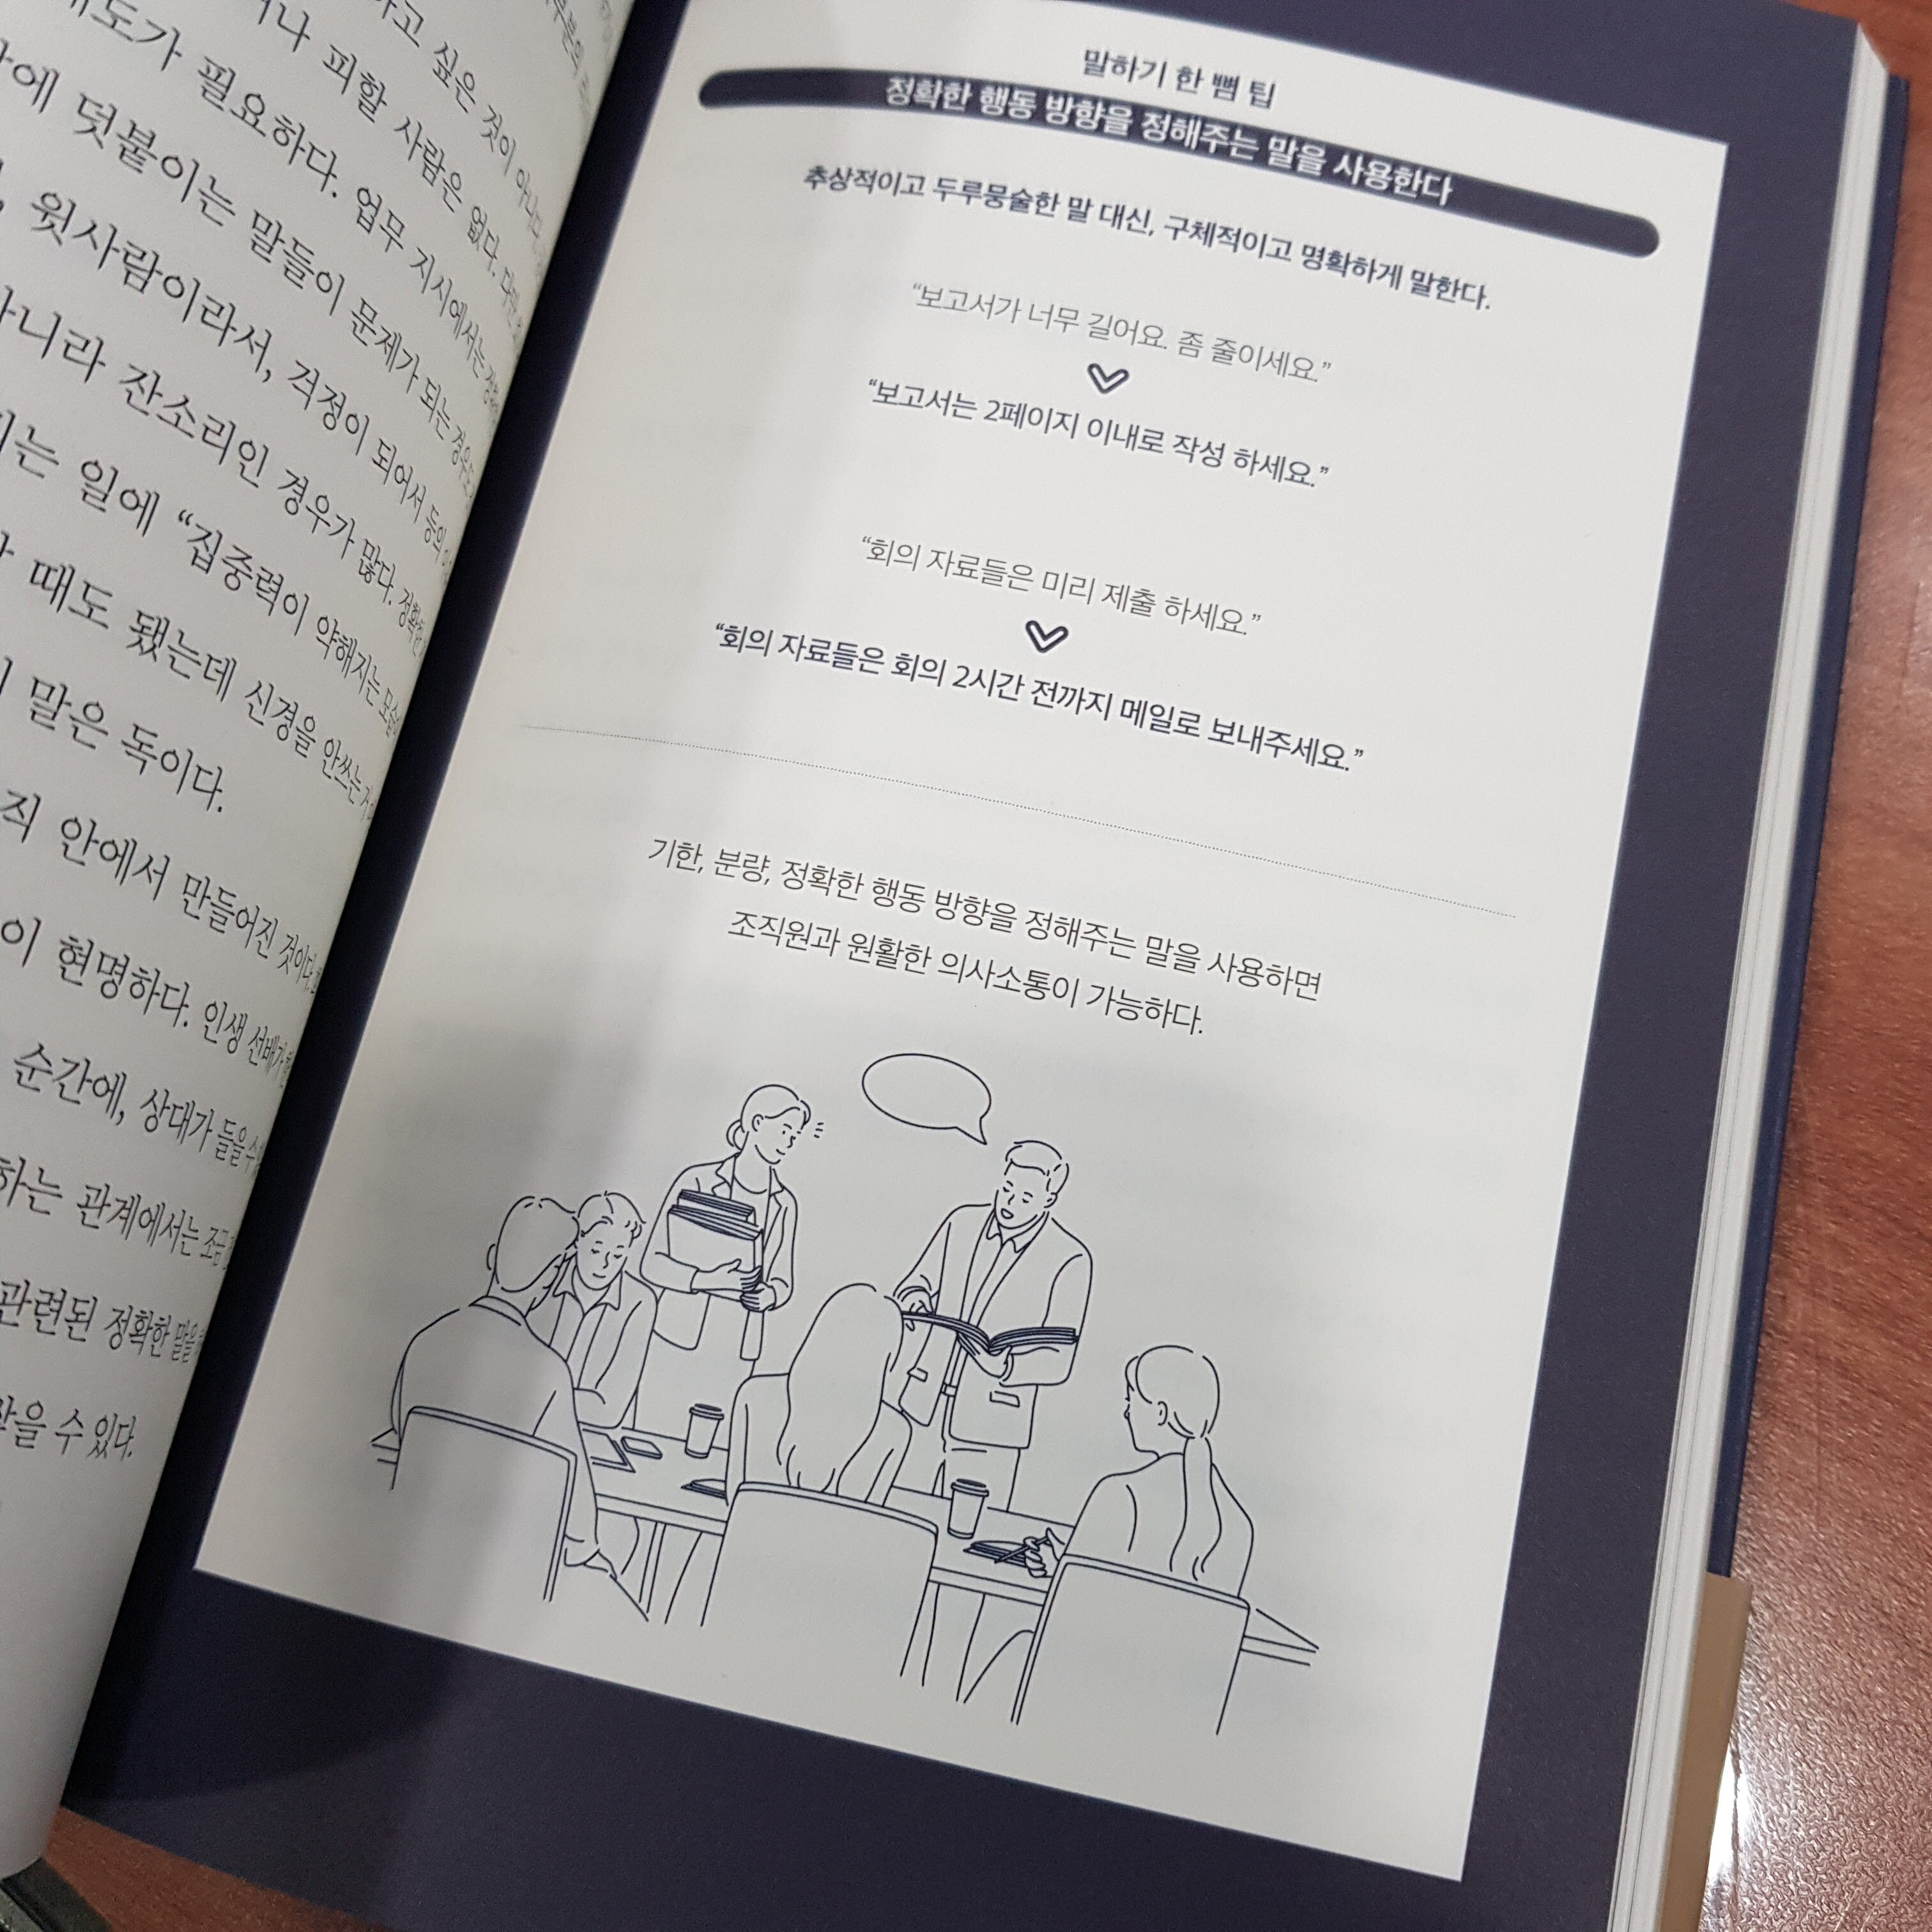 하고 싶은 것이 아니다.
나 피할 사람은 없다. 다만
필요하다. 업무 지시에서는
덧붙이는 말들이 문제가 되는 경우도
윗사람이라서, 걱정이 되어서 등의
아니라 잔소리인 경우가 많다. 정확한
는 일에 “집중력이 약해지는 모습
때도 됐는데 신경을 안쓰는
말은 독이다.
안에서 만들어진 것이다.
이 현명하다. 인생 선배가
순간에, 상대가 들을 수
하는 관계에서는 조금
관련된 정확한 말을
을 수 있다.
말하기 한 뼘 팁
정확한 행동 방향을 정해주는 말을 사용한다
추상적이고 두루뭉술한 말 대신, 구체적이고 명확하게 말한다.
“보고서가 너무 길어요. 좀 줄이세요.”
“보고서는 2페이지 이내로 작성 하세요.”
“회의 자료들은 미리 제출 하세요.”
“회의 자료들은 회의 2시간 전까지 메일로 보내주세요.”
기한, 분량, 정확한 행동 방향을 정해주는 말을 사용하면
조직원과 원활한 의사소통이 가능하다.